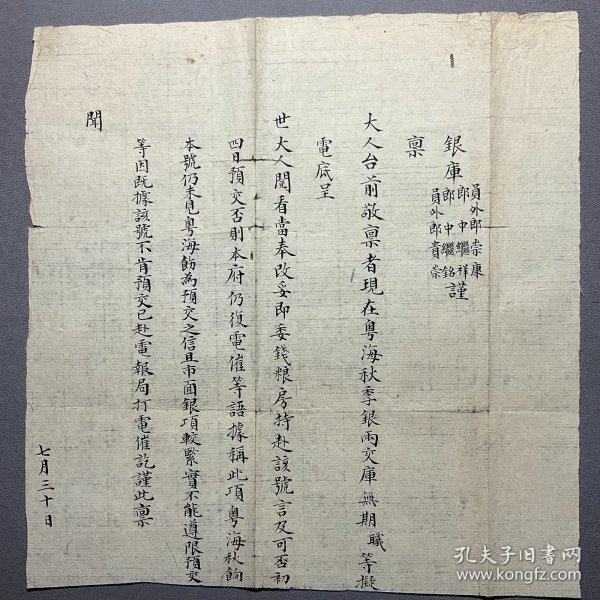 銀庫員外郎崇康郎中繼祥郎中繼銘員外郎貴崇謹
稟
大人台前敬稟者現在粵海秋季銀兩交庫無期職等擬
電底呈
世大人閱看當奉改妥即委錢粮房持赴該號言及可否初
四日預交否則本府仍復電催等語據稱此項粵海秋餉
本號仍未見粵海飭為預交之信且市面銀項較緊實不能遵限預交
等因既據該號不肯預交已赴電報局打電催訖謹此稟
聞
七月三十日
孔夫子旧书网
www.kongfz.com